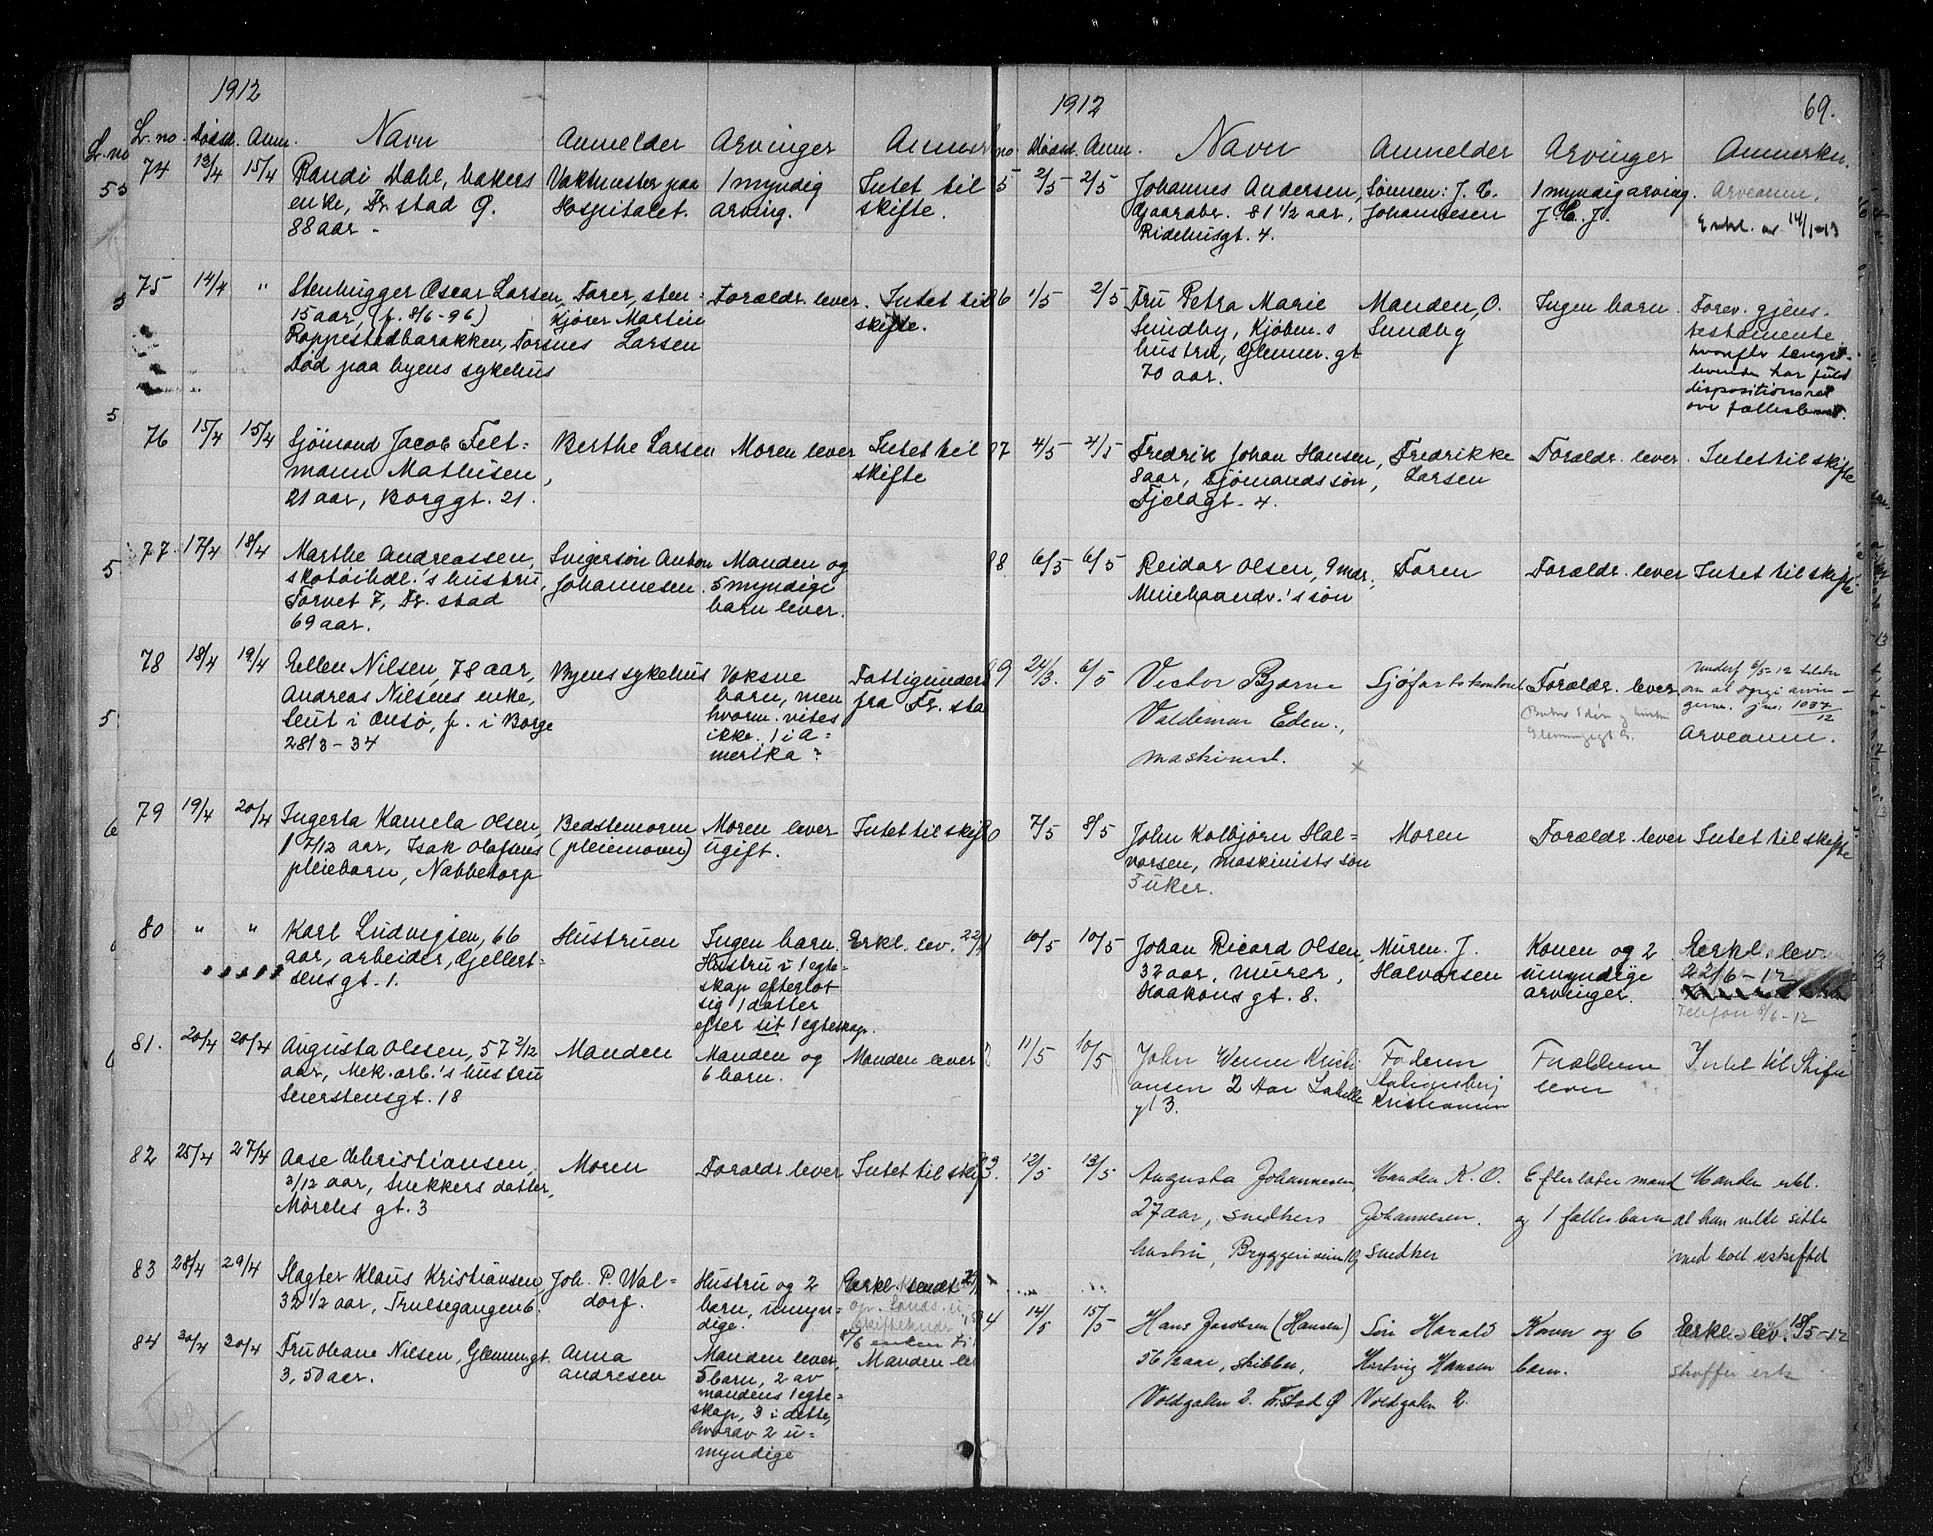 1912
L. no. Dødsd. Anm. Navn Anmelder Arvinger Anmerk
74 13/4 15/4 Randi Dahl, bakers Vaktmester paa 1 myndig Intet til
enke, Fr. stad Ø. Hospitalet. arving. skifte.
88 aar -
75 14/4 " Stenhugger Oscar Larsen, Faren, sten- Forældr. lever. Intet til
15 aar, (f. 8/6-96) kjører Martin skifte.
Roppestadbarakken, Torsnes Larsen
Død paa byens sykehus
76 15/4 15/4 Sjömand Jacob Felt= Berthe Larsen Moren lever Intet til
mann Mathisen, skifte
21 aar, Borggt. 21.
77. 17/4 18/4 Marthe Andreassen, Svigersön Anton Manden og
skotöihdl.'s hustru, Johannesen. 5 myndige
Torvet 7, Fr. stad barn lever.
69 aar.
78 18/4 19/4 Ellen Nilsen, 78 aar, Byens sykehus Voksne Fattigunderst
Andreas Nilsens enke, barn, men fra Fr. sta
Leut i Onsö, f. i Borge hvorm. vites
28/3-34 ikke. 1 i A=
merika?
79 19/4 20/4 Ingerta Kamela Olsen, Bedstemoren Moren lever Intet til skif
1 7/12 aar, Isak Olafsens (pleiemoren) ugift.
pleiebarn, Nabbetorp
80 " " Karl Ludvigsen, 66 Hustruen Ingen barn. Erkl. lev. 22/
aar, arbeider, Gjellert= Hustru i 1 egte=
sensgt. 1. skap efterlot
sig 1 datter
efter sit 1 egteskap.
81. 20/4 20/4 Augusta Olssen, 57 2/12 Manden Manden og Manden lever
aar, Mek. arb.'s hustru 6 barn.
Seierstensgt. 18
82 25/4 27/4 Aase Christiansen, Moren Forældr. lever Intet til skif
3/12 aar, Snekkers datter,
Mörches gt. 3
83 28/4 29/4 Slagter Klaus Kristiansen, Joh. P. Wal= Hustru og 2 Erkl. sendt
32 1/2 aar, Trulsegangen 6. dorf. barn, umyn=
dige.
84 30/4 30/4 Fru Oleane Nilsen, Glemm.gt. Anna Manden lever, Manden le
3, 50 aar. Andresen 5 barn, 2 av
mandens 1 egte=
skap, 3 i dette,
hvorav 2 u=
myndige
1912 69.
no. Dødsd. Anm. Navn Anmelder Arvinger Anmerkn.
5 2/5 2/5 Johannes Andersen, Sönnen: J. C. 1 myndig arving. Arveanm.
Gaardbr. 81 1/2 aar, Johannesen J. C. J. Erkl. av 14/1-13
Ridehusgt. 4.
86 1/5 2/5 Fru Petra Marie Manden, O. Ingen barn. Forev. gjens.
Sundby, Kjöbm.s Sundby testamente
hustru, Glemm. gt hvorefter længst-
70 aar. levende har fuld
dispositionsret
over fællesboet.
87 4/5 4/5 Fredrik Johan Hansen, Fredrikke Forældr. lever. Intet til skifte
8 aar, Sjömandssön, Larsen
Fjeldgt. 4.
88. 6/5 6/5 Reidar Olsen, 9 mdr., Faren Forældr. lever Intet til skifte
Murehaandv.'s sön
89 24/3. 6/5 Victor Bjarne Sjöfartskontoret Forældr. lever Underr 6/5-12
Valdemar Eden., om at opgi arvin-
maskinist. gerne. jnr. 1037/12
Arveanm.
0 7/5 8/5 John Kolbjörn Hal= Moren Forældr. lever Intet til skifte
vorsen, maskinists sön
5 uker.
1 10/5 10/5 Johan Ricard Olsen, Murm. J. Konen og 2 Erkl. lev
32 aar, murer, Halvorsen umyndige 22/6-12
Haakonsgt. 8. arvinger. Telefon /6-12
2 11/5 10/5 John Werner Kristi- Faderen Forældrene Intet til Skifte
ansen 2 Aar Labelle Kristiansen lever
gt 3.
3. 12/5 13/5 Augusta Johannesen, Manden K. O. Efterlater mand Manden erkl.
27 aar, snedkers Johannesen. og 1 fælles barn at han vilde sitte
hustru, Bryggeriveien 19 snedker med boet uskiftet
94 14/5 15/5 Hans Jacobsen (Hansen) Sön Harald Konen og 6 Erkl. lev. 18/5-12
56 1/2 aar, skibber, Hartvig Hansen barn. skaffer erk
Voldgaten 2. Fr.stad Ø Voldgaten 2.